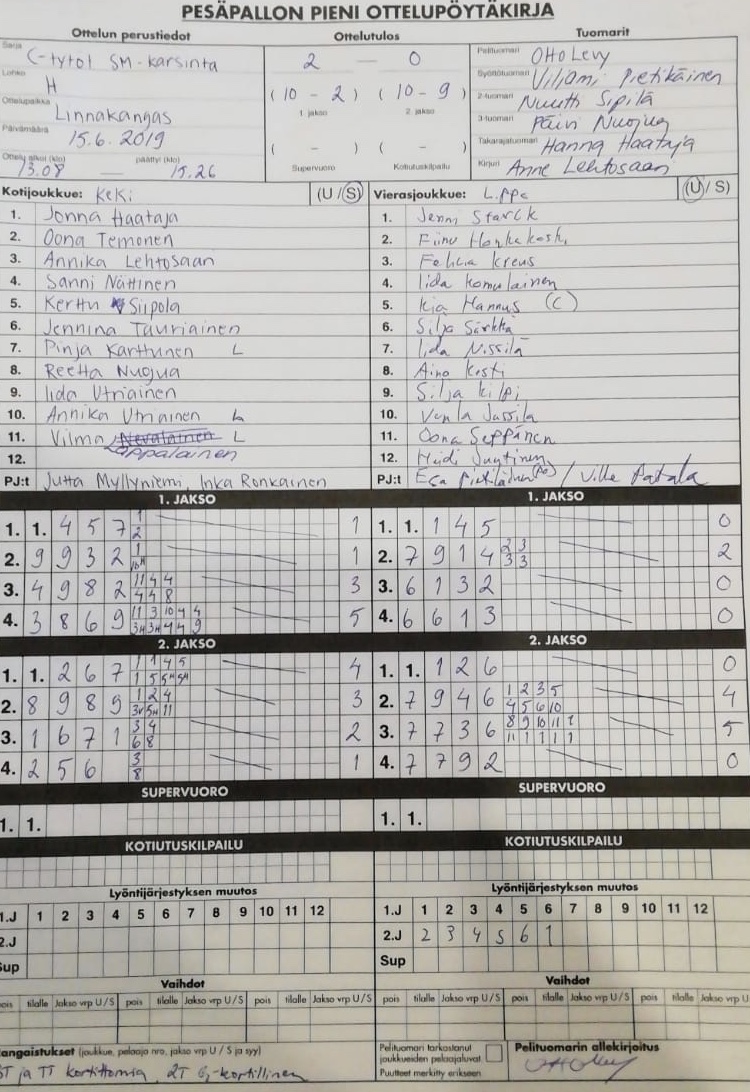 PESÄPALLON PIENI OTTELUPÖYTÄKIRJA
Ottelun perustiedot
Sarja C-tytöt SM-karsinta
Lohko H
Ottelupaikka Linnakangas
Päivämäärä 15.6.2019
Ottelu alkoi (klo) 13.08 — päättyi (klo) 15.26
Ottelutulos
2 — 0
(10 - 2) (10 - 9)
1. jakso 2. jakso
( - ) ( - )
Supervuoro Kotiutuskilpailu
Tuomarit
Pelituomari Otto Levy
Syöttötuomari Viljami Pietikäinen
2-tuomari Nuutti Sipilä
3-tuomari Päivi Nuojua
Takarajatuomari Hanna Haataja
Kirjuri Anne Lehtosaari
Kotijoukkue: KeKi (U/S)
1. Jonna Haataja
2. Oona Temonen
3. Annika Lehtosaari
4. Sanni Nättinen
5. Kerttu Siipola
6. Jennina Tauriainen
7. Pinja Karttunen L
8. Reetta Nuojua
9. Iida Utriainen
10. Annika Utriainen L
11. Vilma Nevalainen L
12. Lappalainen
PJ:t Jutta Myllyniemi, Inka Ronkainen
Vierasjoukkue: Lippo (U/S)
1. Jenni Starck
2. Fiinu Honkakoski
3. Felicia Kreus
4. Iida Komulainen
5. Kia Hannus (C)
6. Silja Särkkä
7. Iida Nissilä
8. Aino Koski
9. Silja Kilpi
10. Venla Jussila
11. Oona Seppänen
12. Heidi Juntinen
PJ:t Esa / Ville Patala
1. JAKSO
1. 1. 4 5 7 1 2 1
2. 9 9 3 2 1 1
3. 4 9 8 2 11 4 4 4 4 8 3
4. 3 8 6 9 11 3 10 4 4 3H 3H 4 4 9 5
1. JAKSO
1. 1. 1 4 5 0
2. 7 9 1 4 2 3 3 3 2
3. 6 1 3 2 0
4. 6 6 1 3 0
2. JAKSO
1. 1. 2 6 7 1 1 4 5 1 5 5H 5H 4
2. 8 9 8 9 1 2 4 3H 5H 11 3
3. 1 6 7 1 3 4 6 8 2
4. 2 5 6 3 8 1
2. JAKSO
1. 1. 1 2 6 0
2. 7 9 4 6 1 2 3 5 4 5 6 10 4
3. 7 7 3 6 8 9 10 11 1 11 1 1 1 1 5
4. 7 7 9 2 0
SUPERVUORO
1. 1.
SUPERVUORO
1. 1.
KOTIUTUSKILPAILU
KOTIUTUSKILPAILU
Lyöntijärjestyksen muutos
1.J 1 2 3 4 5 6 7 8 9 10 11 12
2.J
Sup
Lyöntijärjestyksen muutos
1.J 1 2 3 4 5 6 7 8 9 10 11 12
2.J 2 3 4 5 6 1
Sup
Vaihdot
pois tilalle Jakso vrp U/S pois tilalle Jakso vrp U/S pois tilalle Jakso vrp U/S
Vaihdot
pois tilalle Jakso vrp U/S pois tilalle Jakso vrp U/S pois tilalle Jakso vrp U
angaistukset (joukkue, pelaaja nro, jakso vrp U / S ja syy)
ST ja TT kortittomia, 2T kortillinen
Pelituomari tarkastanut
joukkueiden pelaajaluvat
Puutteet merkitty erikseen
Pelituomarin allekirjoitus